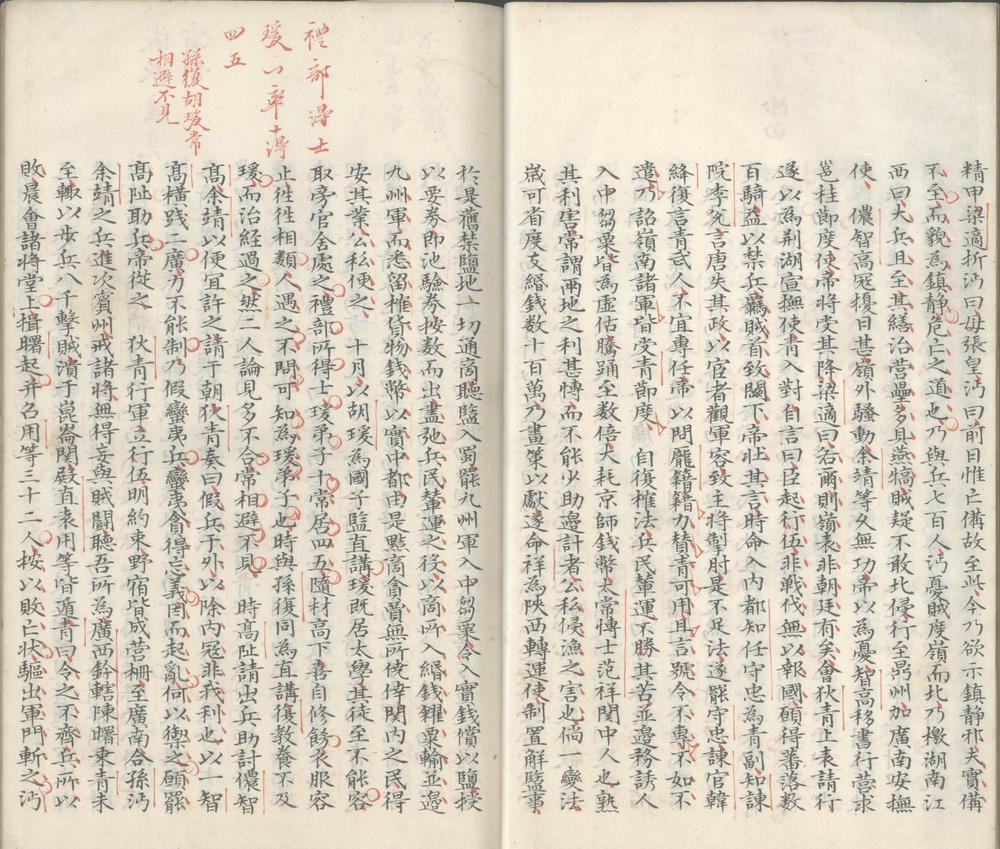 精甲梁適折沔曰毋張皇沔曰前日惟亡備故至此今乃欲示鎮静邪夫實備
不至而貌為鎮静危亡之道也乃與兵七百人沔憂賊度嶺而北乃檄湖南江
西曰大兵且至其繕治營壘多具燕犒賊疑不敢北侵行至鼎州加廣南安撫
使 儂智高冦擾日甚嶺外騷動余靖等久無功帝以為憂智高移書行營求
邕桂節度使帝將受其降梁適曰若爾則嶺表非朝廷有矣會狄青上表請行
遂以為荆湖宣撫使青入對自言曰臣起行伍非戰伐無以報國願得蕃落數
百騎益以禁兵羈賊首致闕下帝壯其言時命入内都知任守忠為青副知諫
院李兊言唐失其政以宦者觀軍容致主將掣肘是不足法遂罷守忠諫官韓
絳復言青武人不宜專任帝以問龎籍籍力賛青可用且言號令不專不如不
遣乃詔嶺南諸軍皆受青節度 自復榷法兵民輦運不勝其苦並邊務誘人
入中芻粟皆為虚估騰踊至數倍大耗京師錢幣太常愽士范祥関中人也熟
其利害常謂兩地之利甚愽而不能少助邊計者公私侵漁之害也倘一變法
歲可省度支緡錢数十百萬乃畫策以獻遂命祥為陜西轉運使制置解鹽事
於是舊禁鹽地一切通商聽鹽入蜀罷九州軍入中芻粟令入實錢償以鹽授
以要劵即池驗劵按數而出盡弛兵民輦運之役以商所入緡錢糴粟輸並邊
九州軍而悉留榷貨物錢幣以實中都由是黠商貪賈無所僥倖関内之民得
安其業公私便之 十月以胡瑗為國子監直講瑗既居太學其徒至不能容
取旁官舍處之禮部所得士瑗弟子十常居四五隨材高下喜自修飭衣服容
止徃徃相類人遇之不問可知為瑗弟子也時與孫復同為直講復教養不及
瑗而治經過之然二人論見多不合常相避不見 時髙阯請出兵助討儂智
高余靖以便宜許之請于朝狄青奏曰假兵于外以除内冦非我利也以一智
髙橫踐二廣力不能制乃假蠻夷兵蠻夷貪得忘義因而起亂何以禦之願罷
髙阯助兵帝從之 狄青行軍立行伍明約束野宿皆成營柵至廣南合孫沔
余靖之兵進次賓州戒諸將無得妄與賊闘聽吾所為廣西鈐轄陳曙乘青未
至輙以步兵八千擊賊潰于崑崙関殿直袁用等皆遁青曰令之不齊兵所以
敗晨會諸將堂上揖曙起并召用等三十二人按以敗亡状驅出軍門斬之沔
禮部得士
瑗○率十得
四五
孫復胡瑗常
相避不見